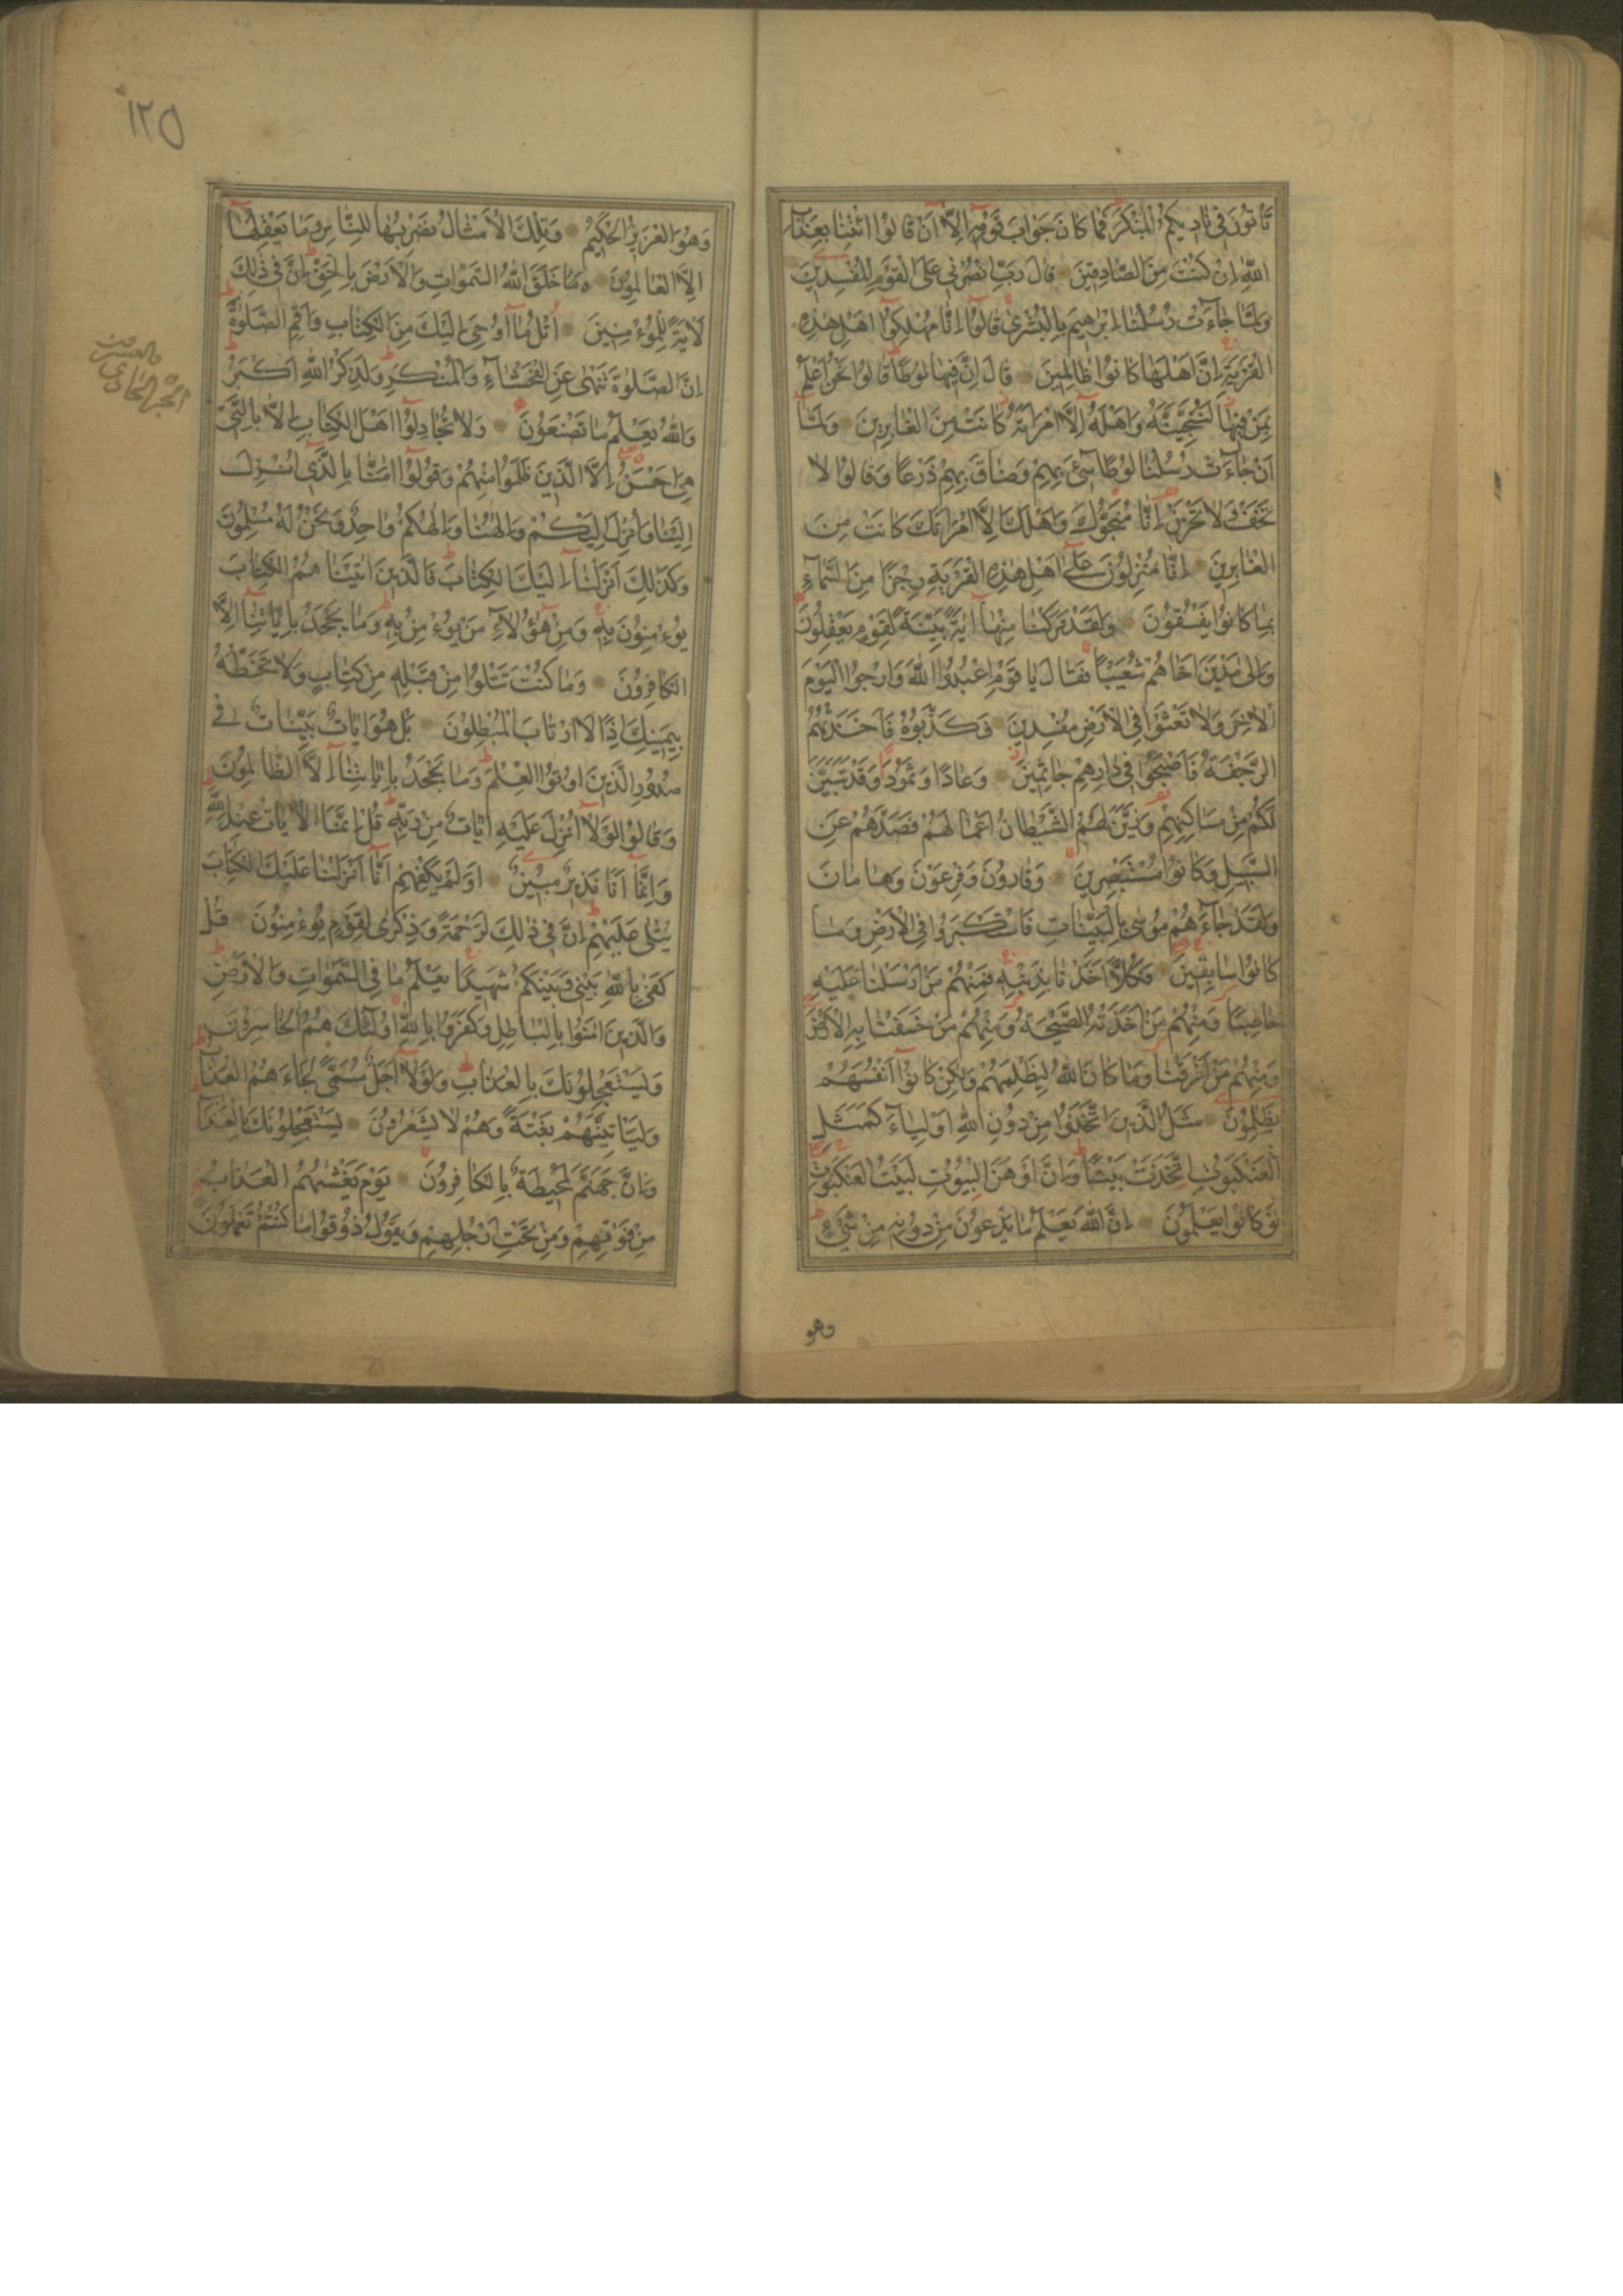 تَأْتُونَ فِي نَادِيكُمُ الْمُنْكَرَ فَمَا كَانَ جَوَابَ قَوْمِهِ إِلَّا أَنْ قَالُوا ائْتِنَا بِعَذَابِ
اللَّهِ إِنْ كُنْتَ مِنَ الصَّادِقِينَ قَالَ رَبِّ انْصُرْنِي عَلَى الْقَوْمِ الْمُفْسِدِينَ
وَلَمَّا جَاءَتْ رُسُلُنَا إِبْرٰهِيمَ بِالْبُشْرٰى قَالُوا إِنَّا مُهْلِكُوا أَهْلِ هٰذِهِ
الْقَرْيَةِ إِنَّ أَهْلَهَا كَانُوا ظَالِمِينَ قَالَ إِنَّ فِيهَا لُوطًا قَالُوا نَحْنُ أَعْلَمُ
بِمَنْ فِيهَا لَنُنَجِّيَنَّهُ وَأَهْلَهُ إِلَّا امْرَأَتَهُ كَانَتْ مِنَ الْغَابِرِينَ وَلَمَّا
أَنْ جَاءَتْ رُسُلُنَا لُوطًا سِيءَ بِهِمْ وَضَاقَ بِهِمْ ذَرْعًا وَقَالُوا لَا
تَخَفْ وَلَا تَحْزَنْ إِنَّا مُنَجُّوكَ وَأَهْلَكَ إِلَّا امْرَأَتَكَ كَانَتْ مِنَ
الْغَابِرِينَ إِنَّا مُنْزِلُونَ عَلٰى أَهْلِ هٰذِهِ الْقَرْيَةِ رِجْزًا مِنَ السَّمَاءِ
بِمَا كَانُوا يَفْسُقُونَ وَلَقَدْ تَرَكْنَا مِنْهَا آيَةً بَيِّنَةً لِقَوْمٍ يَعْقِلُونَ
وَإِلٰى مَدْيَنَ أَخَاهُمْ شُعَيْبًا فَقَالَ يَا قَوْمِ اعْبُدُوا اللَّهَ وَارْجُوا الْيَوْمَ
الْآخِرَ وَلَا تَعْثَوْا فِي الْأَرْضِ مُفْسِدِينَ فَكَذَّبُوهُ فَأَخَذَتْهُمُ
الرَّجْفَةُ فَأَصْبَحُوا فِي دَارِهِمْ جَاثِمِينَ وَعَادًا وَثَمُودَا وَقَدْ تَبَيَّنَ
لَكُمْ مِنْ مَسَاكِنِهِمْ وَزَيَّنَ لَهُمُ الشَّيْطَانُ أَعْمَالَهُمْ فَصَدَّهُمْ عَنِ
السَّبِيلِ وَكَانُوا مُسْتَبْصِرِينَ وَقَارُونَ وَفِرْعَوْنَ وَهَامَانَ
وَلَقَدْ جَاءَهُمْ مُوسٰى بِالْبَيِّنَاتِ فَاسْتَكْبَرُوا فِي الْأَرْضِ وَمَا
كَانُوا سَابِقِينَ فَكُلًّا أَخَذْنَا بِذَنْبِهِ فَمِنْهُمْ مَنْ أَرْسَلْنَا عَلَيْهِ
حَاصِبًا وَمِنْهُمْ مَنْ أَخَذَتْهُ الصَّيْحَةُ وَمِنْهُمْ مَنْ خَسَفْنَا بِهِ الْأَرْضَ
وَمِنْهُمْ مَنْ أَغْرَقْنَا وَمَا كَانَ اللَّهُ لِيَظْلِمَهُمْ وَلٰكِنْ كَانُوا أَنْفُسَهُمْ
يَظْلِمُونَ مَثَلُ الَّذِينَ اتَّخَذُوا مِنْ دُونِ اللَّهِ أَوْلِيَاءَ كَمَثَلِ
الْعَنْكَبُوتِ اتَّخَذَتْ بَيْتًا وَإِنَّ أَوْهَنَ الْبُيُوتِ لَبَيْتُ الْعَنْكَبُوتِ
لَوْ كَانُوا يَعْلَمُونَ إِنَّ اللَّهَ يَعْلَمُ مَا يَدْعُونَ مِنْ دُونِهِ مِنْ شَيْءٍ
وهو
١٢٥
وَهُوَ الْعَزِيزُ الْحَكِيمُ وَتِلْكَ الْأَمْثَالُ نَضْرِبُهَا لِلنَّاسِ وَمَا يَعْقِلُهَا
إِلَّا الْعَالِمُونَ خَلَقَ اللَّهُ السَّمٰوَاتِ وَالْأَرْضَ بِالْحَقِّ إِنَّ فِي ذٰلِكَ
لَآيَةً لِلْمُؤْمِنِينَ اُتْلُ مَا أُوحِيَ إِلَيْكَ مِنَ الْكِتَابِ وَأَقِمِ الصَّلٰوةَ
إِنَّ الصَّلٰوةَ تَنْهٰى عَنِ الْفَحْشَاءِ وَالْمُنْكَرِ وَلَذِكْرُ اللَّهِ أَكْبَرُ
وَاللَّهُ يَعْلَمُ مَا تَصْنَعُونَ وَلَا تُجَادِلُوا أَهْلَ الْكِتَابِ إِلَّا بِالَّتِي
هِيَ أَحْسَنُ إِلَّا الَّذِينَ ظَلَمُوا مِنْهُمْ وَقُولُوا آمَنَّا بِالَّذِي أُنْزِلَ
إِلَيْنَا وَأُنْزِلَ إِلَيْكُمْ وَإِلٰهُنَا وَإِلٰهُكُمْ وَاحِدٌ وَنَحْنُ لَهُ مُسْلِمُونَ
وَكَذٰلِكَ أَنْزَلْنَا إِلَيْكَ الْكِتَابَ فَالَّذِينَ آتَيْنَاهُمُ الْكِتَابَ
يُؤْمِنُونَ بِهِ وَمِنْ هٰؤُلَاءِ مَنْ يُؤْمِنُ بِهِ وَمَا يَجْحَدُ بِآيَاتِنَا إِلَّا
الْكَافِرُونَ وَمَا كُنْتَ تَتْلُوا مِنْ قَبْلِهِ مِنْ كِتَابٍ وَلَا تَخُطُّهُ
بِيَمِينِكَ إِذًا لَارْتَابَ الْمُبْطِلُونَ بَلْ هُوَ آيَاتٌ بَيِّنَاتٌ فِي
صُدُورِ الَّذِينَ أُوتُوا الْعِلْمَ وَمَا يَجْحَدُ بِآيَاتِنَا إِلَّا الظَّالِمُونَ
وَقَالُوا لَوْلَا أُنْزِلَ عَلَيْهِ آيَاتٌ مِنْ رَبِّهِ قُلْ إِنَّمَا الْآيَاتُ عِنْدَ اللَّهِ
وَإِنَّمَا أَنَا نَذِيرٌ مُبِينٌ أَوَلَمْ يَكْفِهِمْ أَنَّا أَنْزَلْنَا عَلَيْكَ الْكِتَابَ
يُتْلٰى عَلَيْهِمْ إِنَّ فِي ذٰلِكَ لَرَحْمَةً وَذِكْرٰى لِقَوْمٍ يُؤْمِنُونَ قُلْ
كَفٰى بِاللَّهِ بَيْنِي وَبَيْنَكُمْ شَهِيدًا يَعْلَمُ مَا فِي السَّمٰوَاتِ وَالْأَرْضِ
وَالَّذِينَ آمَنُوا بِالْبَاطِلِ وَكَفَرُوا بِاللَّهِ أُولٰئِكَ هُمُ الْخَاسِرُونَ
وَيَسْتَعْجِلُونَكَ بِالْعَذَابِ وَلَوْلَا أَجَلٌ مُسَمًّى لَجَاءَهُمُ الْعَذَابُ
وَلَيَأْتِيَنَّهُمْ بَغْتَةً وَهُمْ لَا يَشْعُرُونَ يَسْتَعْجِلُونَكَ بِالْعَذَابِ
وَإِنَّ جَهَنَّمَ لَمُحِيطَةٌ بِالْكَافِرِينَ يَوْمَ يَغْشٰيهُمُ الْعَذَابُ
مِنْ فَوْقِهِمْ وَمِنْ تَحْتِ أَرْجُلِهِمْ وَيَقُولُ ذُوقُوا مَا كُنْتُمْ تَعْمَلُونَ
الجزء الحادي
والعشرون